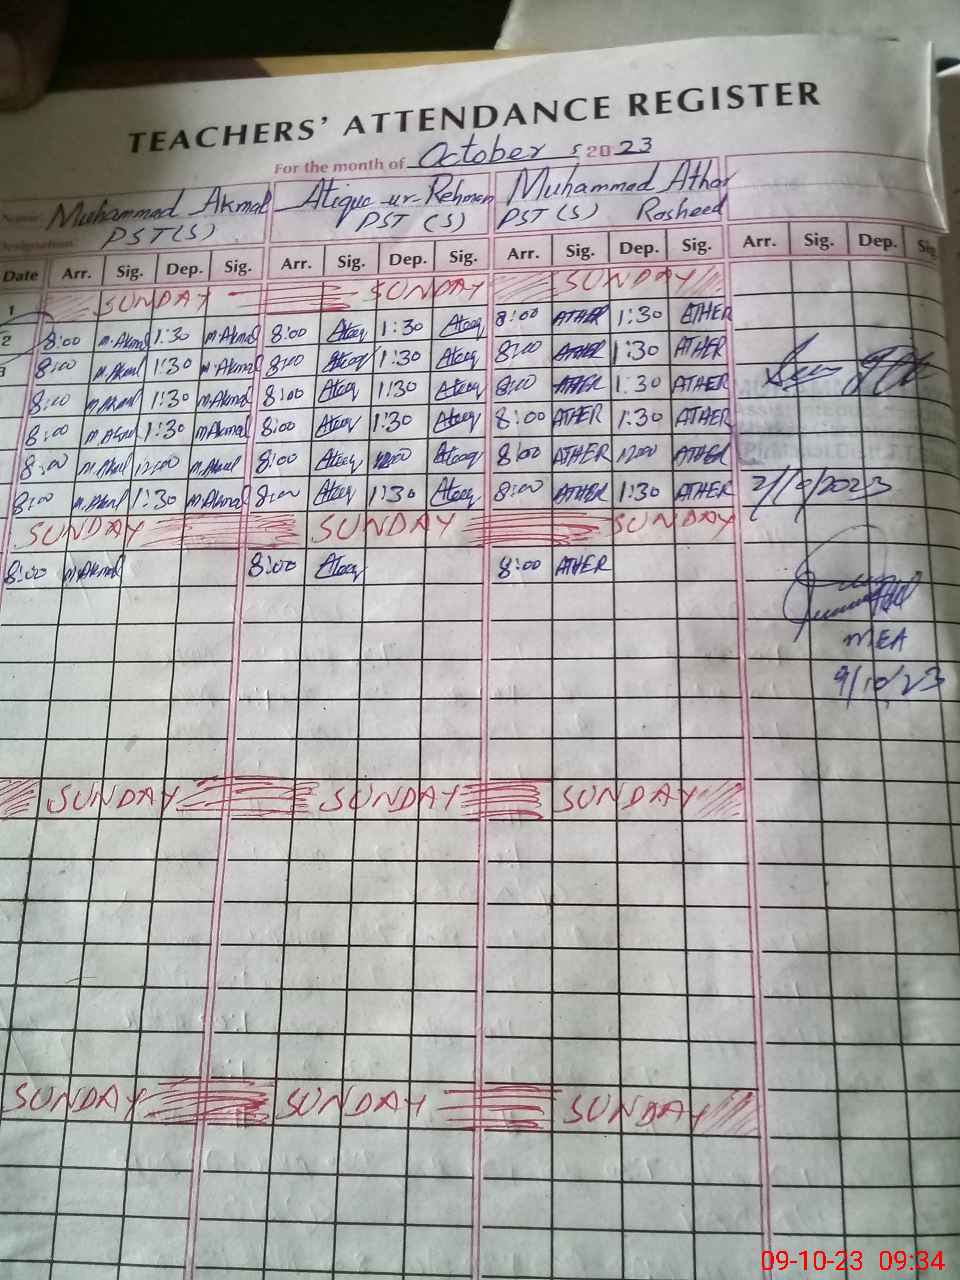 TEACHERS' ATTENDANCE REGISTER
For the month of October 2023
Name: Muhammad Akmal Atique-ur-Rehman Muhammad Athar Rasheed
Designation: PST(S) PST (S) PST (S)
Date Arr. Sig. Dep. Sig. Arr. Sig. Dep. Sig. Arr. Sig. Dep. Sig. Arr. Sig. Dep. Sig.
1 SUNDAY SUNDAY SUNDAY
2 8:00 M.Akmal 1:30 M.Akmal 8:00 Ateeq 1:30 Ateeq 8:00 ATHER 1:30 ATHER
3 8:00 M.Akmal 1:30 M.Akmal 8:00 Ateeq 1:30 Ateeq 8:00 ATHER 1:30 ATHER
8:00 M.Akmal 1:30 M.Akmal 8:00 Ateeq 1:30 Ateeq 8:00 ATHER 1:30 ATHER
8:00 M.Akmal 1:30 M.Akmal 8:00 Ateeq 1:30 Ateeq 8:00 ATHER 1:30 ATHER
8:00 M.Akmal 12:00 M.Akmal 8:00 Ateeq 12:00 Ateeq 8:00 ATHER 12:00 ATHER
8:00 M.Akmal 1:30 M.Akmal 8:00 Ateeq 1:30 Ateeq 8:00 ATHER 1:30 ATHER 2/10/2023
SUNDAY SUNDAY SUNDAY
8:00 M.Akmal 8:00 Ateeq 8:00 ATHER
MEA
9/10/23
SUNDAY SUNDAY SUNDAY
SUNDAY SUNDAY SUNDAY
09-10-23 09:34